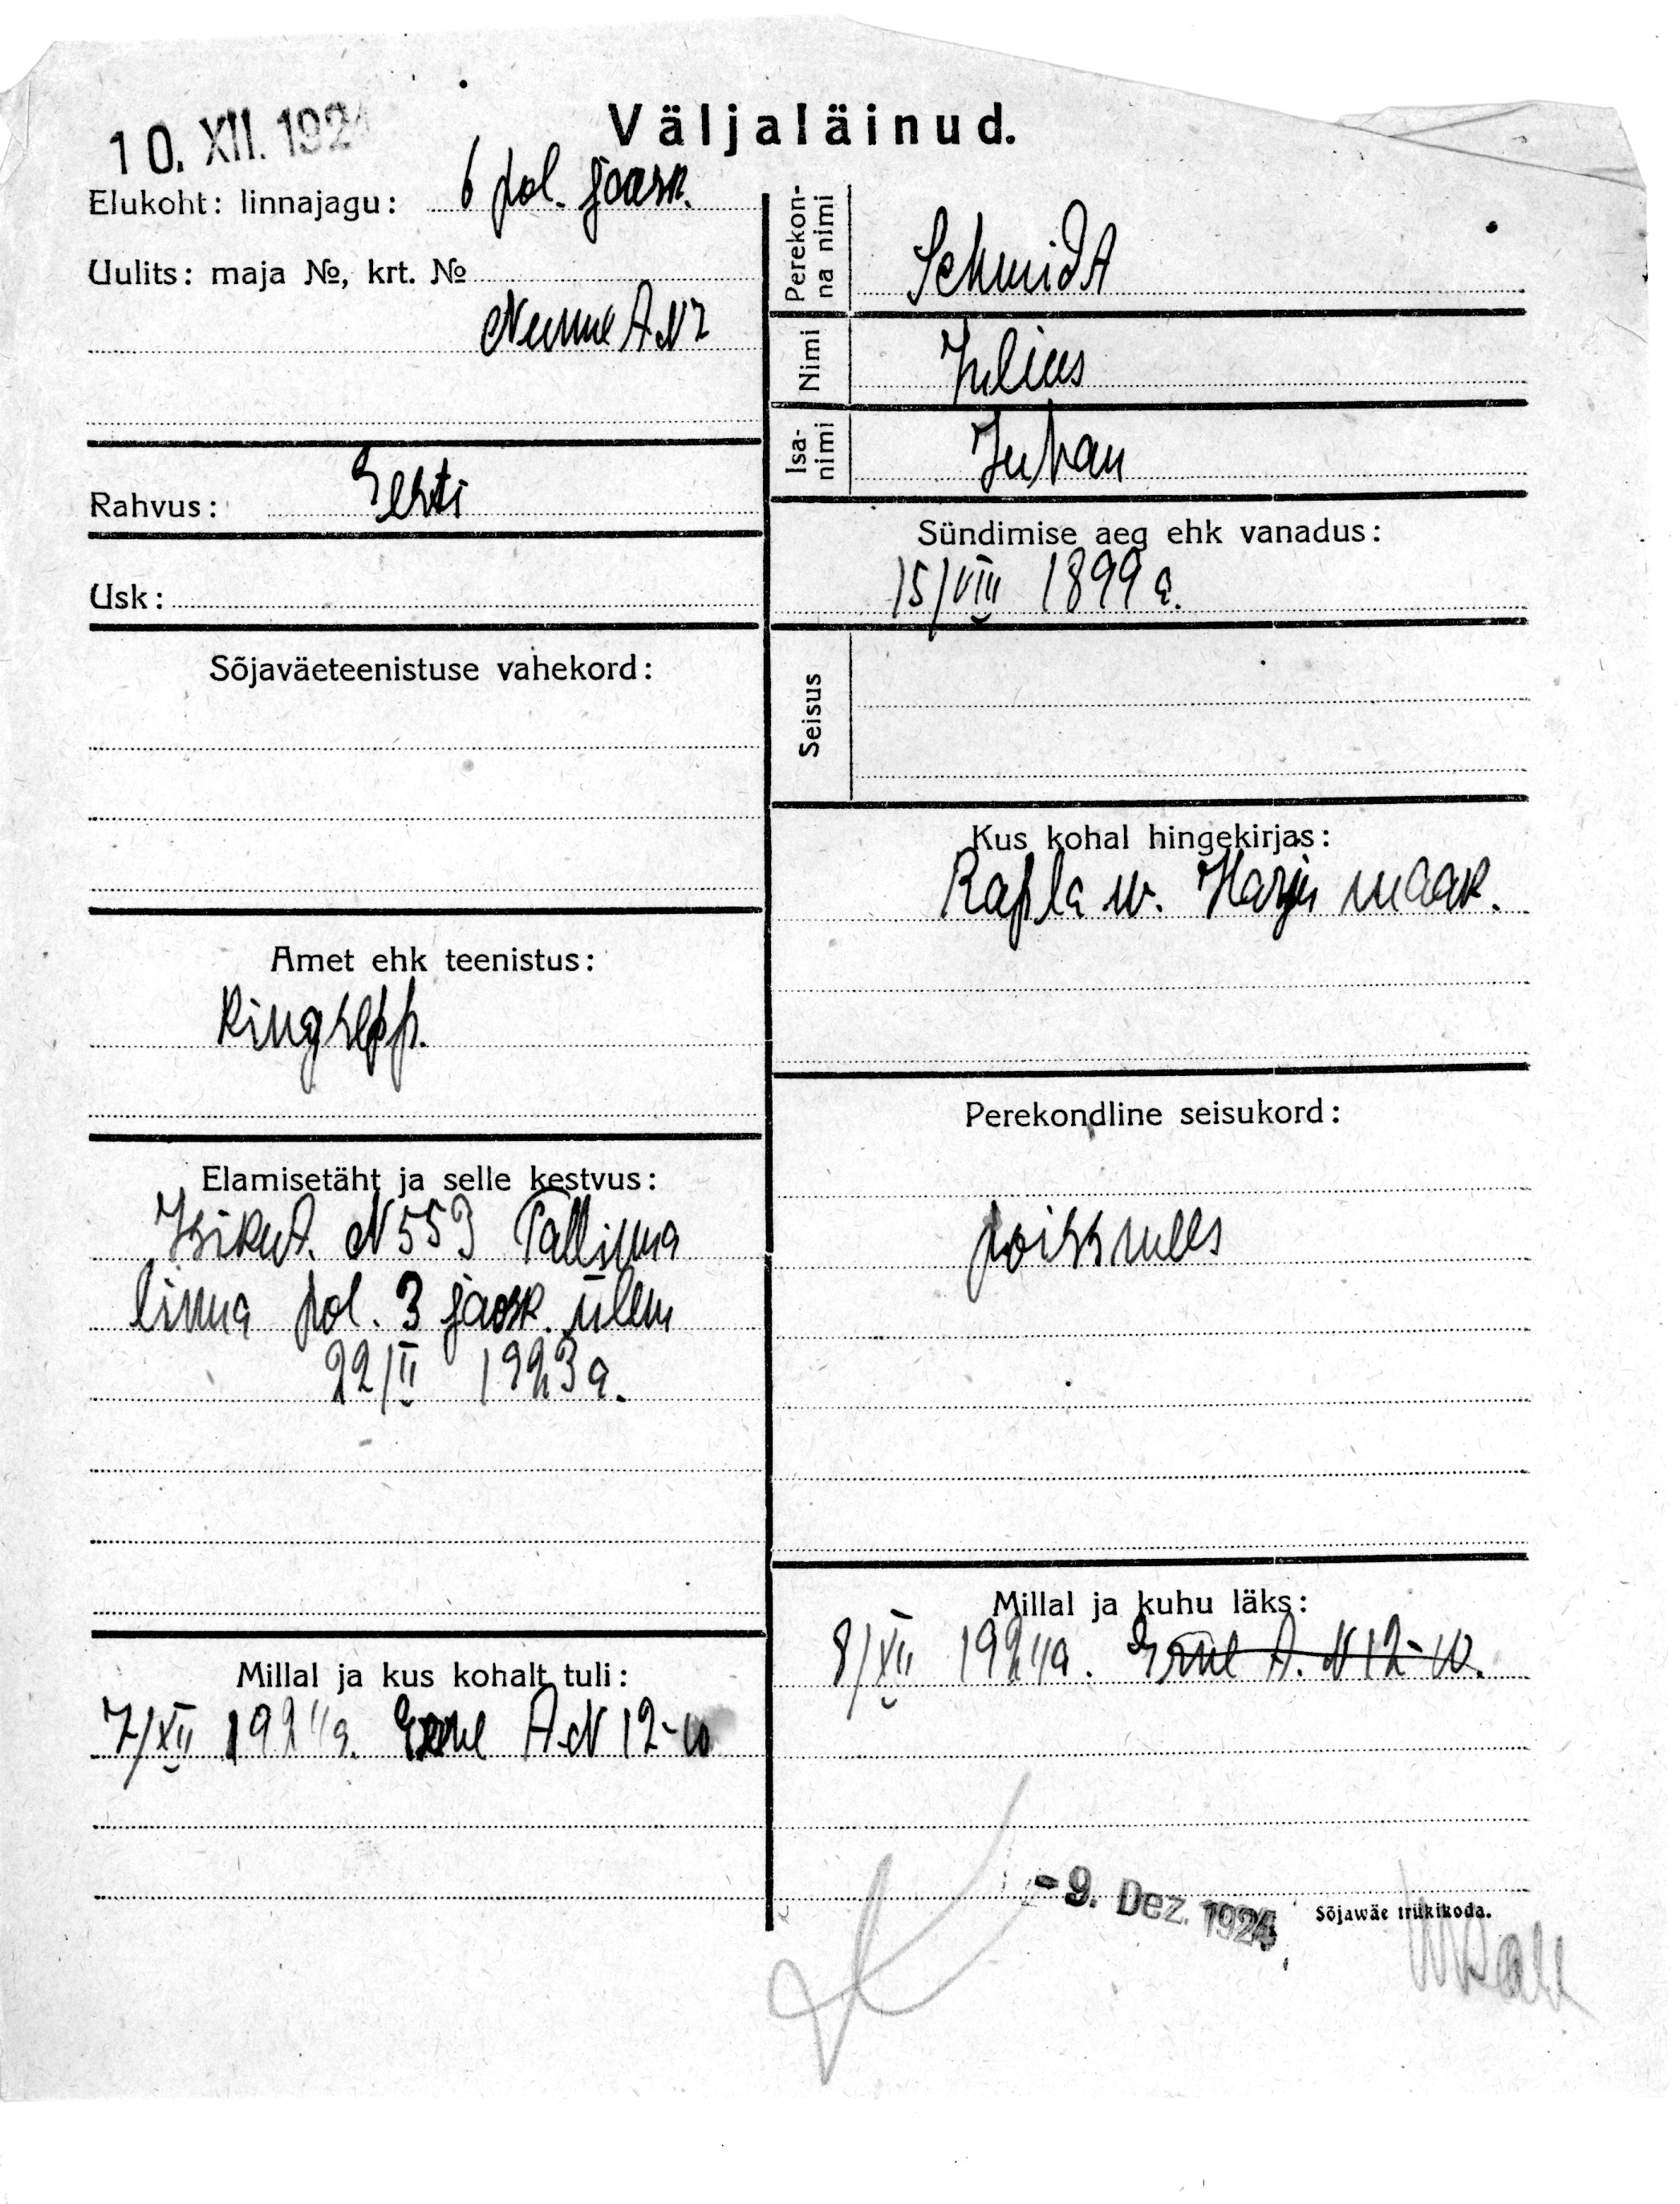 10. XII. 1924
Väljaläinud.
Elukoht: linnajagu: 6 pol. jaosk.
Uulits: maja №, krt. №
Nurme t. N 2
Rahvus: Eesti
Usk:
Sõjaväeteenistuse vahekord:
Amet ehk teenistus:
kingsepp.
Elamisetäht ja selle kestvus:
Isikut. N 553 Tallinna
linna pol. 3 jaosk. ülem
22/II 1923 a.
Millal ja kus kohalt tuli:
7/XII 1924 a. t. N 12-10
Perekonna nimi
Schmidt
Nimi
Julius
Isanimi
Juhan
Sündimise aeg ehk vanadus:
15/VIII 1899 a.
Seisus
Kus kohal hingekirjas:
Rapla w. Harju maak.
Perekondline seisukord:
poissmees
Millal ja kuhu läks:
8/XII 1924 a. t. N 12-10.
-9. Dez. 1924
Sõjawäe trükikoda.